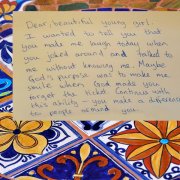 Dear beautiful young girl,
I wanted to tell you that
you made me laugh today when
you joked around and talked to
me without knowing me. Maybe
God's purpose was to make me
smile when God made you
forget the ticket. Continue with
this ability – you make a difference
to people around you.